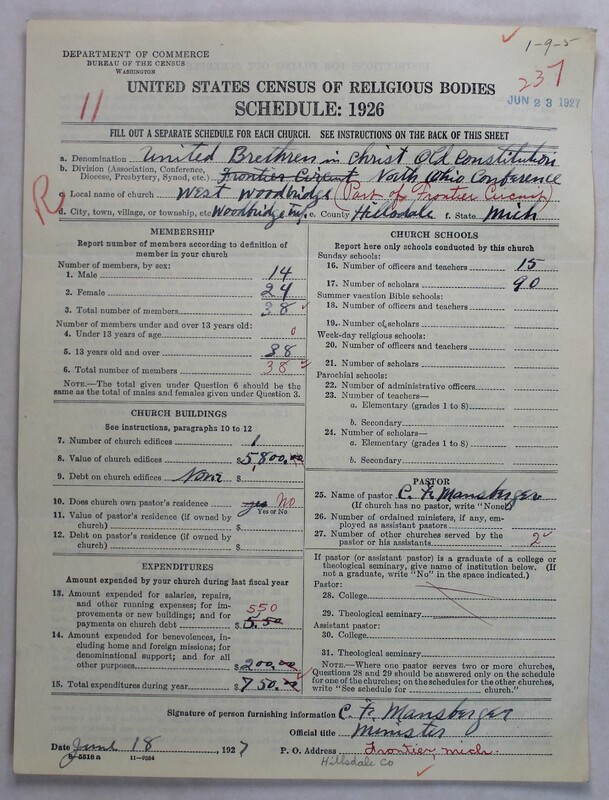 1-9-5
DEPARTMENT OF COMMERCE
BUREAU OF THE CENSUS
WASHINGTON
237
JUN 23 1927
UNITED STATES CENSUS OF RELIGIOUS BODIES
11
SCHEDULE: 1926
FILL OUT A SEPARATE SCHEDULE FOR EACH CHURCH. SEE INSTRUCTIONS ON THE BACK OF THIS SHEET
a. Denomination United Brethren in Christ Old Constitution
b. Division (Association, Conference, Diocese, Presbytery, Synod, etc.) Frontier Circuit North Ohio Conference
R
c. Local name of church West Woodbridge (Part of Frontier Circuit)
d. City, town, village, or township, etc Woodbridge tp. e. County Hillsdale f. State Mich
MEMBERSHIP
Report number of members according to definition of
member in your church
Number of members, by sex:
1. Male 14
2. Female 24
3. Total number of members 38
Number of members under and over 13 years old:
4. Under 13 years of age 0
5. 13 years old and over 38
6. Total number of members 38
NOTE.—The total given under Question 6 should be
same as the total of males and females given under Question 3.
CHURCH BUILDINGS
See instructions, paragraphs 10 to 12
7. Number of church edifices 1
8. Value of church edifices $5,800.00
9. Debt on church edifices None $
10. Does church own pastor's residence yes No
Yes or No
11. Value of pastor's residence (if owned by
church) $
12. Debt on pastor's residence (if owned by
church) $
EXPENDITURES
Amount expended by your church during last fiscal year
13. Amount expended for salaries, repairs,
and other running expenses; for im-
provements or new buildings; and for 550
payments on church debt $5.50
14. Amount expended for benevolences,
including home and foreign missions; for
denominational support; and for all
other purposes $200.00
15. Total expenditures during year $750.00
CHURCH SCHOOLS
Report here only schools conducted by this church
Sunday schools:
16. Number of officers and teachers 15
17. Number of scholars 90
Summer vacation Bible schools:
18. Number of officers and teachers
19. Number of scholars
Week-day religious schools:
20. Number of officers and teachers
21. Number of scholars
Parochial schools:
22. Number of administrative officers
23. Number of teachers—
a. Elementary (grades 1 to 8)
b. Secondary
24. Number of scholars—
a. Elementary (grades 1 to 8)
b. Secondary
PASTOR
25. Name of pastor C. F. Mansberger
(If church has no pastor, write "None")
26. Number of ordained ministers, if any, em-
ployed as assistant pastors
27. Number of other churches served by the
pastor or his assistants 2
If pastor (or assistant pastor) is a graduate of a college or
theological seminary, give name of institution below. (If
not a graduate, write "No" in the space indicated.)
Pastor:
28. College
29. Theological seminary
Assistant pastor:
30. College
31. Theological seminary
NOTE.—Where one pastor serves two or more churches,
Questions 28 and 29 should be answered only on the schedule
for one of the churches; on the schedules for the other churches,
write "See schedule for church."
Signature of person furnishing information C. F. Mansberger
Official title Minister
Date June 18, 1927 P. O. Address Frontier, Mich.
8-5518 a 11-9284
Hillsdale Co